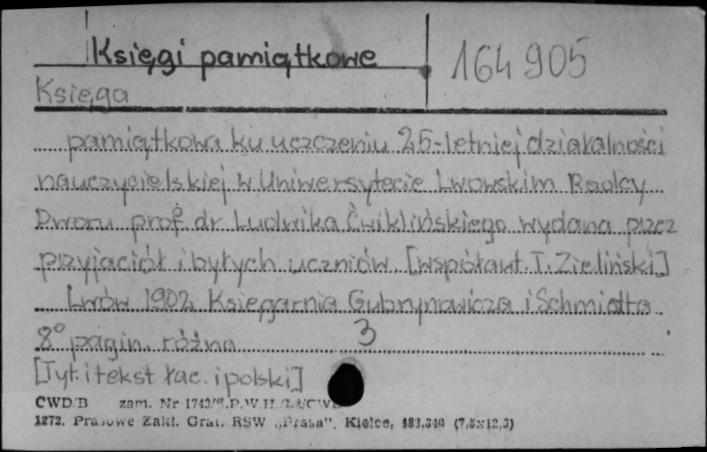 Księgi pamiątkowe 164 905
Księga
pamiątkowa ku uczczeniu 25-letniej działalności
nauczycielskiej w Uniwersytecie Lwowskim Radcy
Dworu prof dr Ludwika Ćwiklińskiego wydana przez
przyjaciół i byłych uczniów [współaut. T. Zieliński]
Lwów 1902 Księgarnia Gubrynowicza i Schmidta
8° pagin. różna 3
[Tyt. i tekst łac. i polski]
CWD/B zam. Nr
1272. Prasowe Zakł. Graf. RSW „Prasa”, Kielce, (7,5x12,5)